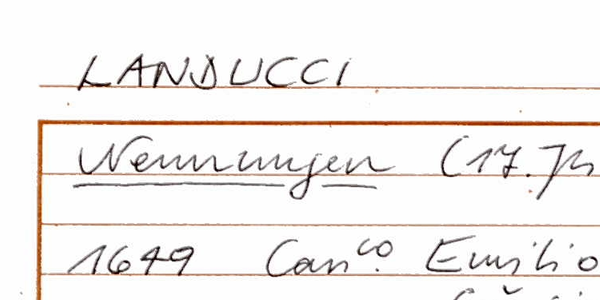 LANDUCCI
Nennungen (17. Jh
1649 Can.co Emilio